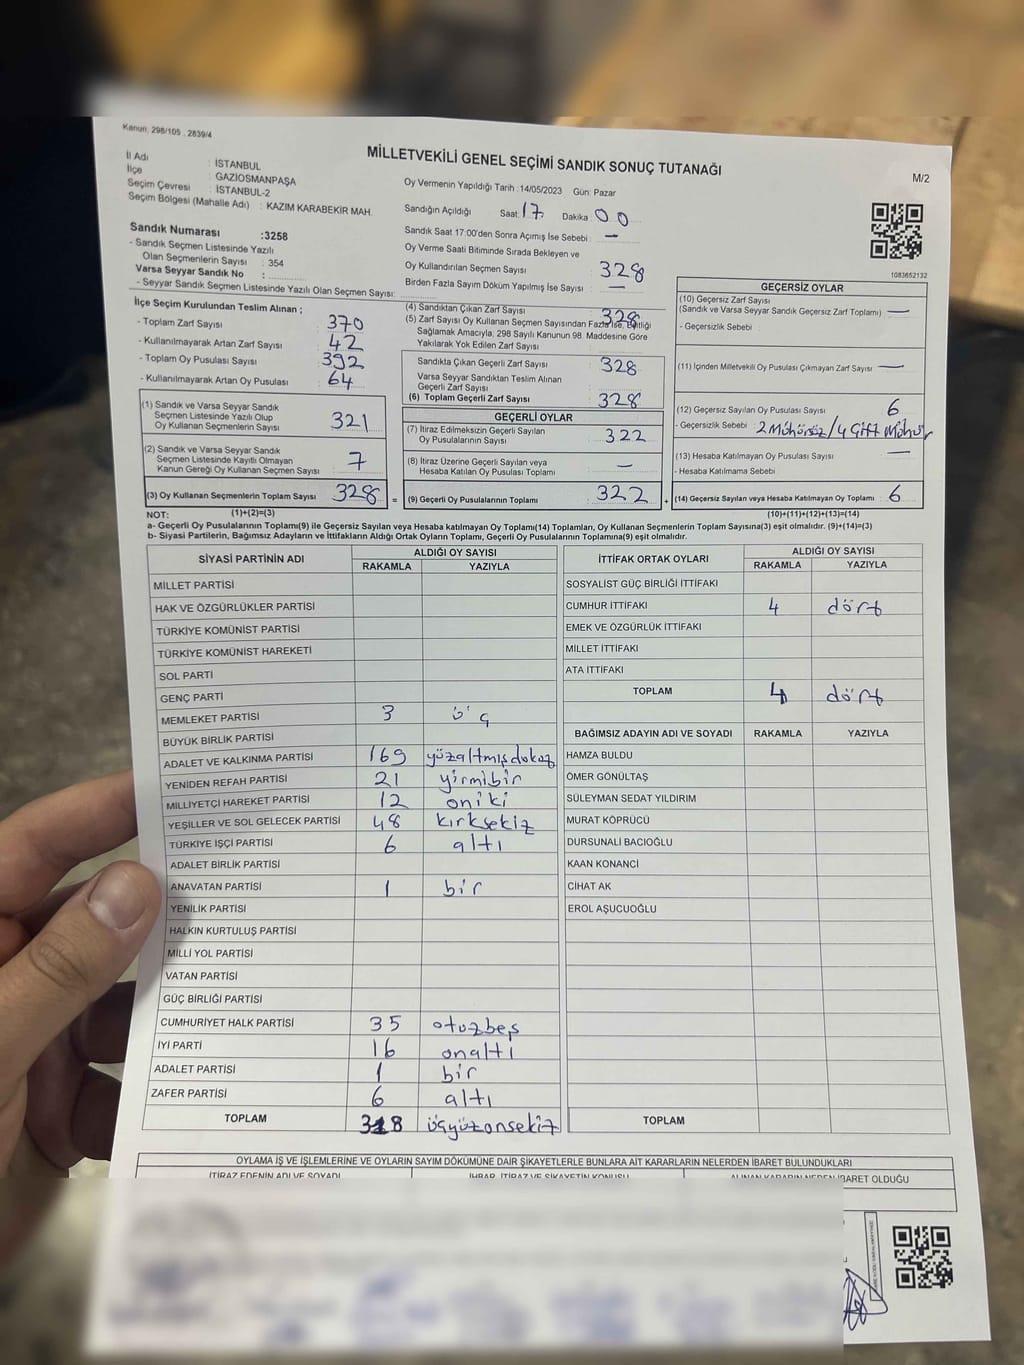 Kanun, 298/105 , 2839/4
MİLLETVEKİLİ GENEL SEÇİMİ SANDIK SONUÇ TUTANAĞI
M/2
İl Adı : İSTANBUL
İlçe : GAZİOSMANPAŞA
Seçim Çevresi : İSTANBUL-2
Seçim Bölgesi (Mahalle Adı) : KAZIM KARABEKİR MAH.
Sandık Numarası :3258
- Sandık Seçmen Listesinde Yazılı
Olan Seçmenlerin Sayısı : 354
Varsa Seyyar Sandık No :
- Seyyar Sandık Seçmen Listesinde Yazılı Olan Seçmen Sayısı:
Oy Vermenin Yapıldığı Tarih :14/05/2023 Gün: Pazar
Sandığın Açıldığı Saat: 17 Dakika : 00
Sandık Saat 17:00'den Sonra Açımış İse Sebebi : —
Oy Verme Saati Bitiminde Sırada Bekleyen ve
Oy Kullandırılan Seçmen Sayısı 328
Birden Fazla Sayım Döküm Yapılmış İse Sayısı : —
1083652132
İlçe Seçim Kurulundan Teslim Alınan ;
- Toplam Zarf Sayısı : 370
- Kullanılmayarak Artan Zarf Sayısı : 42
- Toplam Oy Pusulası Sayısı : 392
- Kullanılmayarak Artan Oy Pusulası : 64
(1) Sandık ve Varsa Seyyar Sandık
Seçmen Listesinde Yazılı Olup
Oy Kullanan Seçmenlerin Sayısı 321
(2) Sandık ve Varsa Seyyar Sandık
Seçmen Listesinde Kayıtlı Olmayan
Kanun Gereği Oy Kullanan Seçmen Sayısı 7
(3) Oy Kullanan Seçmenlerin Toplam Sayısı 328 =
(4) Sandıktan Çıkan Zarf Sayısı 328
(5) Zarf Sayısı Oy Kullanan Seçmen Sayısından Fazla İse, Eşitliği
Sağlamak Amacıyla, 298 Sayılı Kanunun 98. Maddesine Göre
Yakılarak Yok Edilen Zarf Sayısı
Sandıkta Çıkan Geçerli Zarf Sayısı 328
Varsa Seyyar Sandıktan Teslim Alınan
Geçerli Zarf Sayısı
(6) Toplam Geçerli Zarf Sayısı 328
GEÇERLİ OYLAR
(7) İtiraz Edilmeksizin Geçerli Sayılan
Oy Pusulalarının Sayısı 322
(8) İtiraz Üzerine Geçerli Sayılan veya
Hesaba Katılan Oy Pusulası Toplamı —
(9) Geçerli Oy Pusulalarının Toplamı 322 +
GEÇERSİZ OYLAR
(10) Geçersiz Zarf Sayısı
(Sandık ve Varsa Seyyar Sandık Geçersiz Zarf Toplamı) —
- Geçersizlik Sebebi
(11) İçinden Milletvekili Oy Pusulası Çıkmayan Zarf Sayısı —
(12) Geçersiz Sayılan Oy Pusulası Sayısı 6
- Geçersizlik Sebebi : 2 Mühürsüz/4 Çift Mühür
(13) Hesaba Katılmayan Oy Pusulası Sayısı —
- Hesaba Katılmama Sebebi
(14) Geçersiz Sayılan veya Hesaba Katılmayan Oy Toplamı 6
NOT: (1)+(2)=(3) (10)+(11)+(12)+(13)=(14)
a- Geçerli Oy Pusulalarının Toplamı(9) ile Geçersiz Sayılan veya Hesaba katılmayan Oy Toplamı(14) Toplamları, Oy Kullanan Seçmenlerin Toplam Sayısına(3) eşit olmalıdır. (9)+(14)=(3)
b- Siyasi Partilerin, Bağımsız Adayların ve İttifakların Aldığı Ortak Oyların Toplamı, Geçerli Oy Pusulalarının Toplamına(9) eşit olmalıdır.
SİYASİ PARTİNİN ADI ALDIĞI OY SAYISI
RAKAMLA YAZIYLA
MİLLET PARTİSİ
HAK VE ÖZGÜRLÜKLER PARTİSİ
TÜRKİYE KOMÜNİST PARTİSİ
TÜRKİYE KOMÜNİST HAREKETİ
SOL PARTİ
GENÇ PARTİ
MEMLEKET PARTİSİ 3 üç
BÜYÜK BİRLİK PARTİSİ
ADALET VE KALKINMA PARTİSİ 169 yüzaltmışdokuz
YENİDEN REFAH PARTİSİ 21 yirmibir
MİLLİYETÇİ HAREKET PARTİSİ 12 oniki
YEŞİLLER VE SOL GELECEK PARTİSİ 48 kırksekiz
TÜRKİYE İŞÇİ PARTİSİ 6 altı
ADALET BİRLİK PARTİSİ
ANAVATAN PARTİSİ 1 bir
YENİLİK PARTİSİ
HALKIN KURTULUŞ PARTİSİ
MİLLİ YOL PARTİSİ
VATAN PARTİSİ
GÜÇ BİRLİĞİ PARTİSİ
CUMHURİYET HALK PARTİSİ 35 otuzbeş
İYİ PARTİ 16 onaltı
ADALET PARTİSİ 1 bir
ZAFER PARTİSİ 6 altı
TOPLAM 318 üçyüzonsekiz
İTTİFAK ORTAK OYLARI ALDIĞI OY SAYISI
RAKAMLA YAZIYLA
SOSYALİST GÜÇ BİRLİĞİ İTTİFAKI
CUMHUR İTTİFAKI 4 dört
EMEK VE ÖZGÜRLÜK İTTİFAKI
MİLLET İTTİFAKI
ATA İTTİFAKI
TOPLAM 4 dört
BAĞIMSIZ ADAYIN ADI VE SOYADI RAKAMLA YAZIYLA
HAMZA BULDU
ÖMER GÖNÜLTAŞ
SÜLEYMAN SEDAT YILDIRIM
MURAT KÖPRÜCÜ
DURSUNALİ BACIOĞLU
KAAN KONANCİ
CİHAT AK
EROL AŞUCUOĞLU
TOPLAM
OYLAMA İŞ VE İŞLEMLERİNE VE OYLARIN SAYIM DÖKÜMÜNE DAİR ŞİKAYETLERLE BUNLARA AİT KARARLARIN NELERDEN İBARET BULUNDUKLARI
İTİRAZ EDENİN ADI VE SOYADI İHBAR, İTİRAZ VE ŞİKAYETİN KONUSU ALINAN KARARIN NEDEN İBARET OLDUĞU